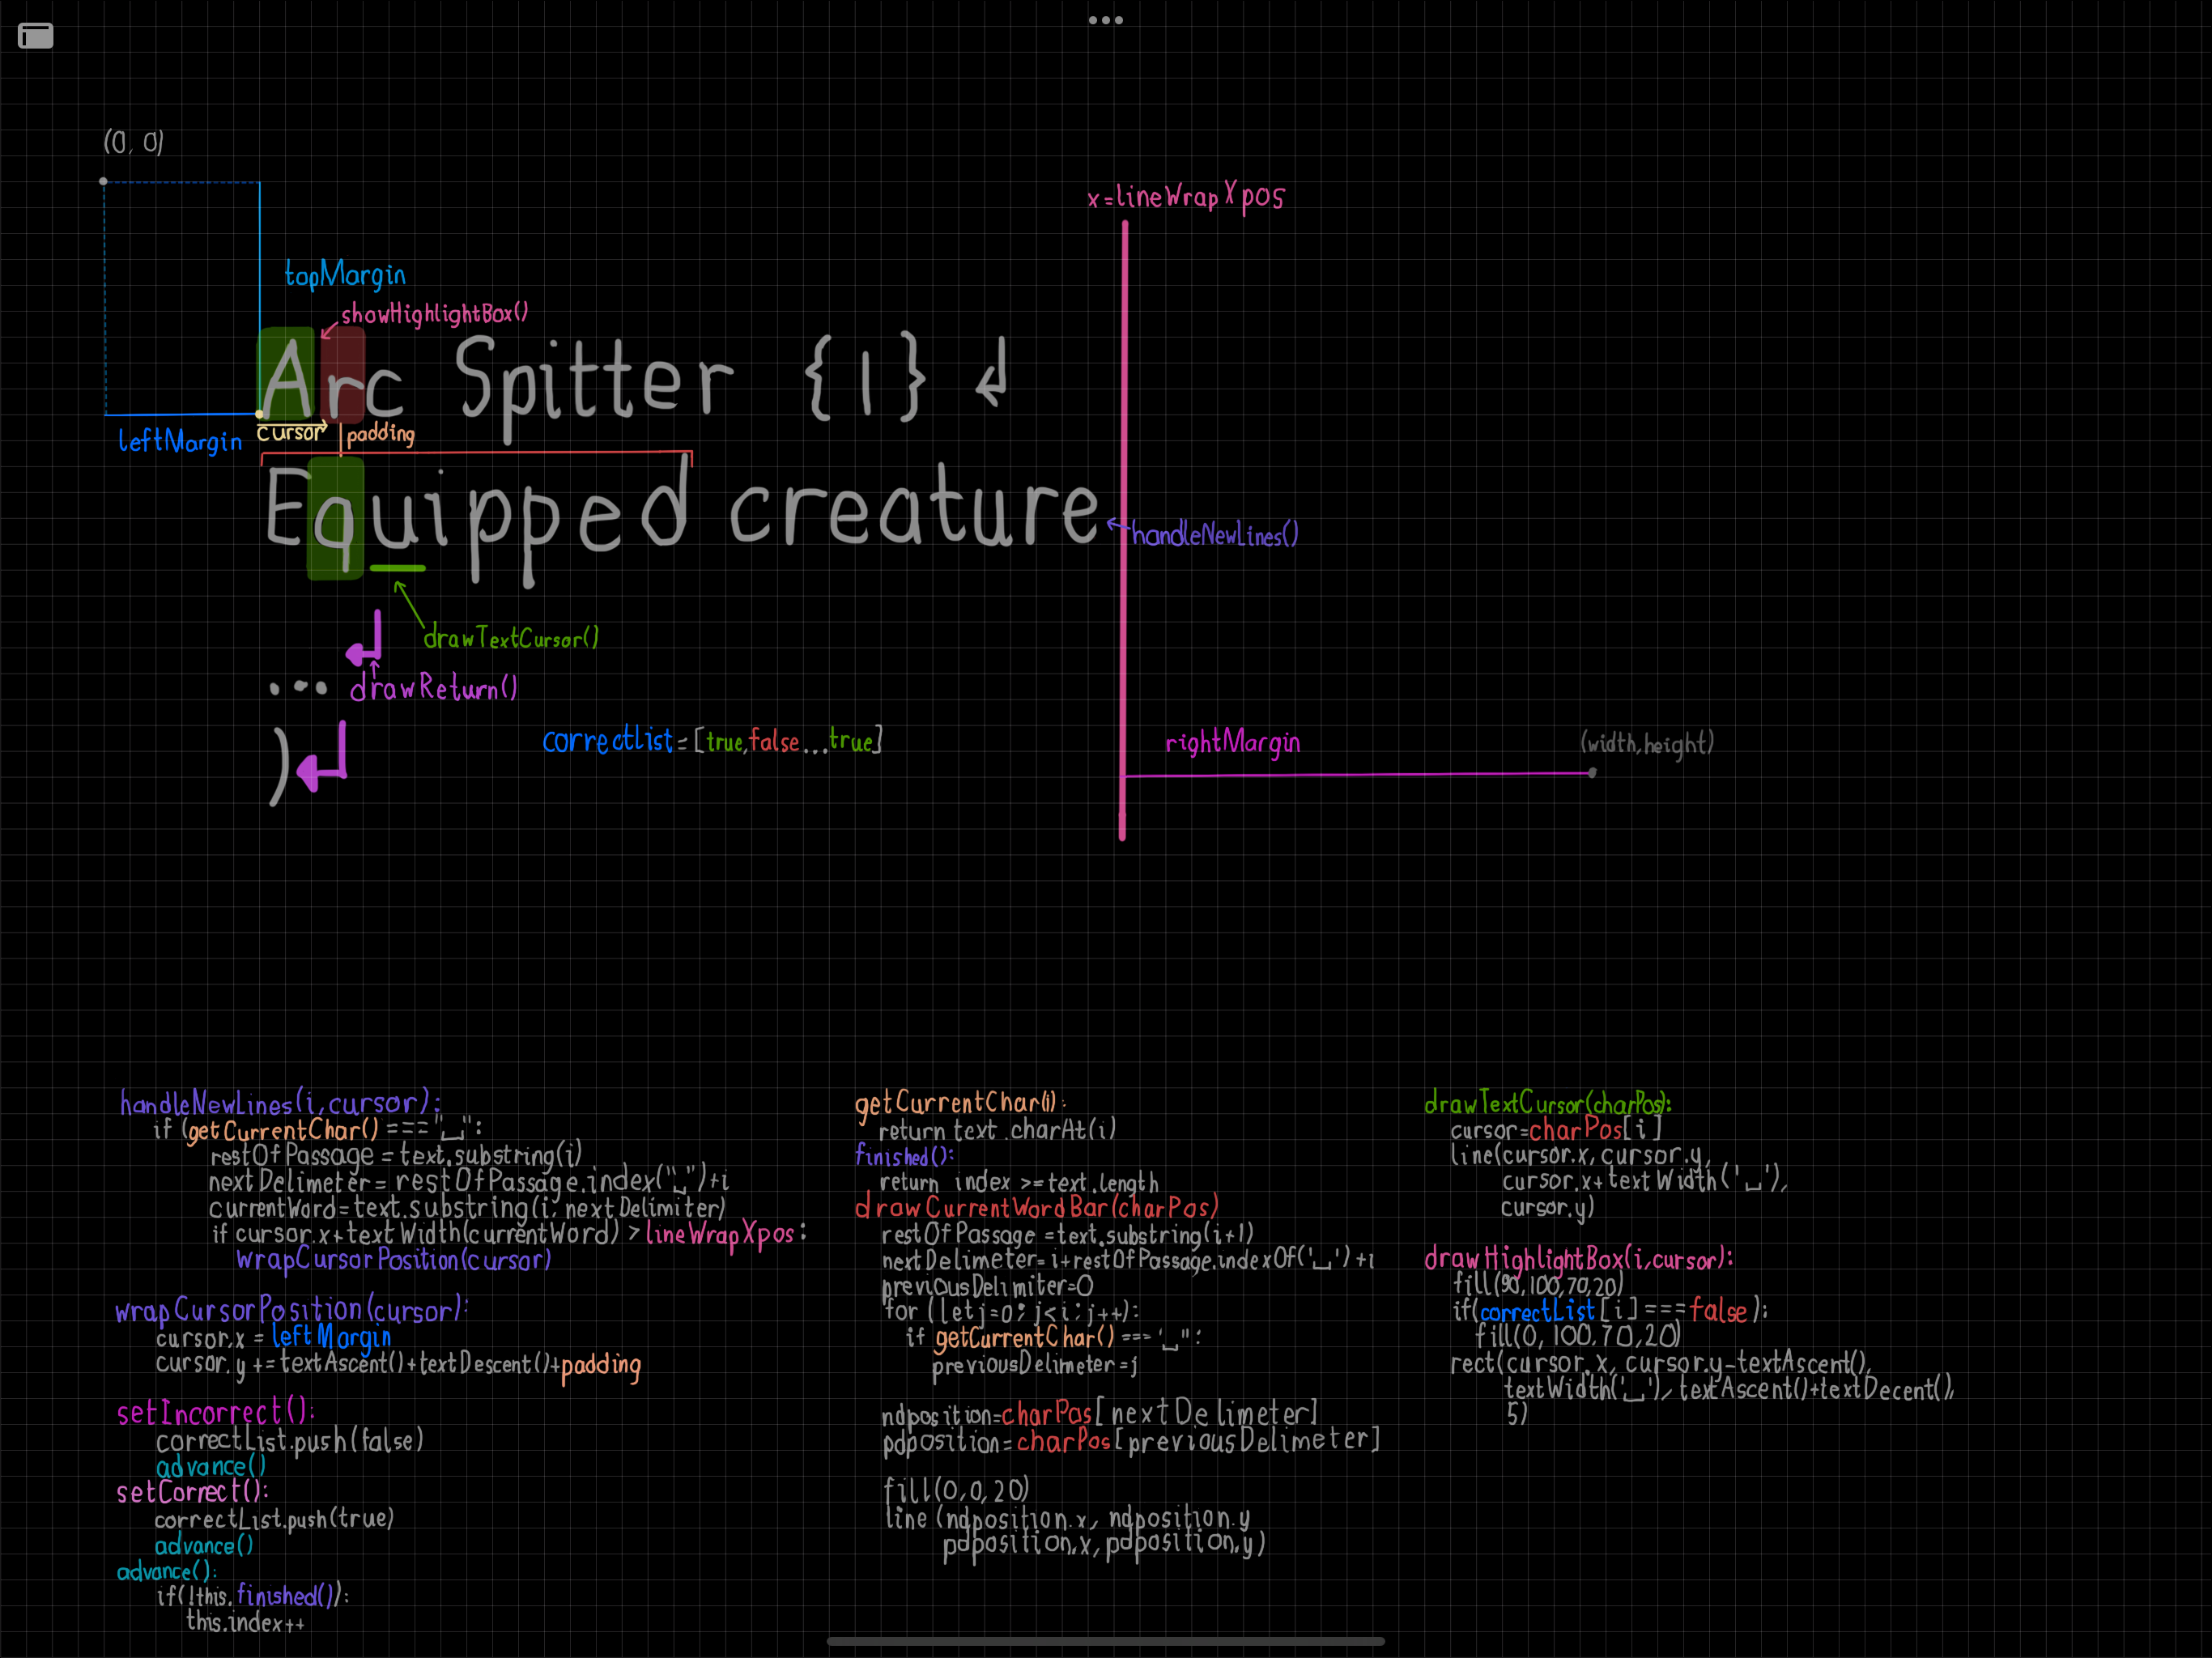 (0, 0)
x=lineWrapXpos
topMargin
showHighlightBox()
Arc Spitter {1} ↲
leftMargin
cursor
padding
Equipped creature
handleNewLines()
drawTextCursor()
... drawReturn()
)
correctlist=[true,false...true]
rightMargin
(width,height)
handleNewLines(i,cursor):
if (getCurrentChar() === "␣":
restOfPassage = text.substring(i)
nextDelimeter= restOfPassage.index("␣")+i
currentWord=text.substring(i, nextDelimiter)
if cursor.x+textWidth(currentWord) > lineWrapXpos:
wrapCursorPosition(cursor)
wrapCursorPosition(cursor):
cursor.x = leftMargin
cursor.y +=textAscent()+textDescent()+padding
setIncorrect():
correctList.push(false)
advance()
setCorrect():
correctList.push(true)
advance()
advance():
if(!this.finished()):
this.index++
getCurrentChar(i):
return text.charAt(i)
finished():
return index >=text.length
drawCurrentWordBar(charPos)
restOfPassage =text.substring(i+1)
nextDelimeter=i+restOfPassage.indexOf('␣')+i
previousDelimiter=0
for (let j=0; j<i; j++):
if getCurrentChar() === '␣":
previousDelimeter=j
ndposition=charPos[nextDelimeter]
pdposition=charPos[previousDelimeter]
fill(0,0,20)
line (ndposition.x, ndposition.y
pdposition.x, pdposition.y)
drawTextCursor(charPos):
cursor=charPos[i]
line(cursor.x, cursor.y,
cursor.x+textWidth('␣'),
cursor.y)
drawHighlightBox(i,cursor):
fill(90,100,70,20)
if(correctList[i]===false):
fill(0, 100,70,20)
rect(cursor.x, cursor.y-textAscent(),
textWidth('␣'), textAscent()+textDecent(),
5)